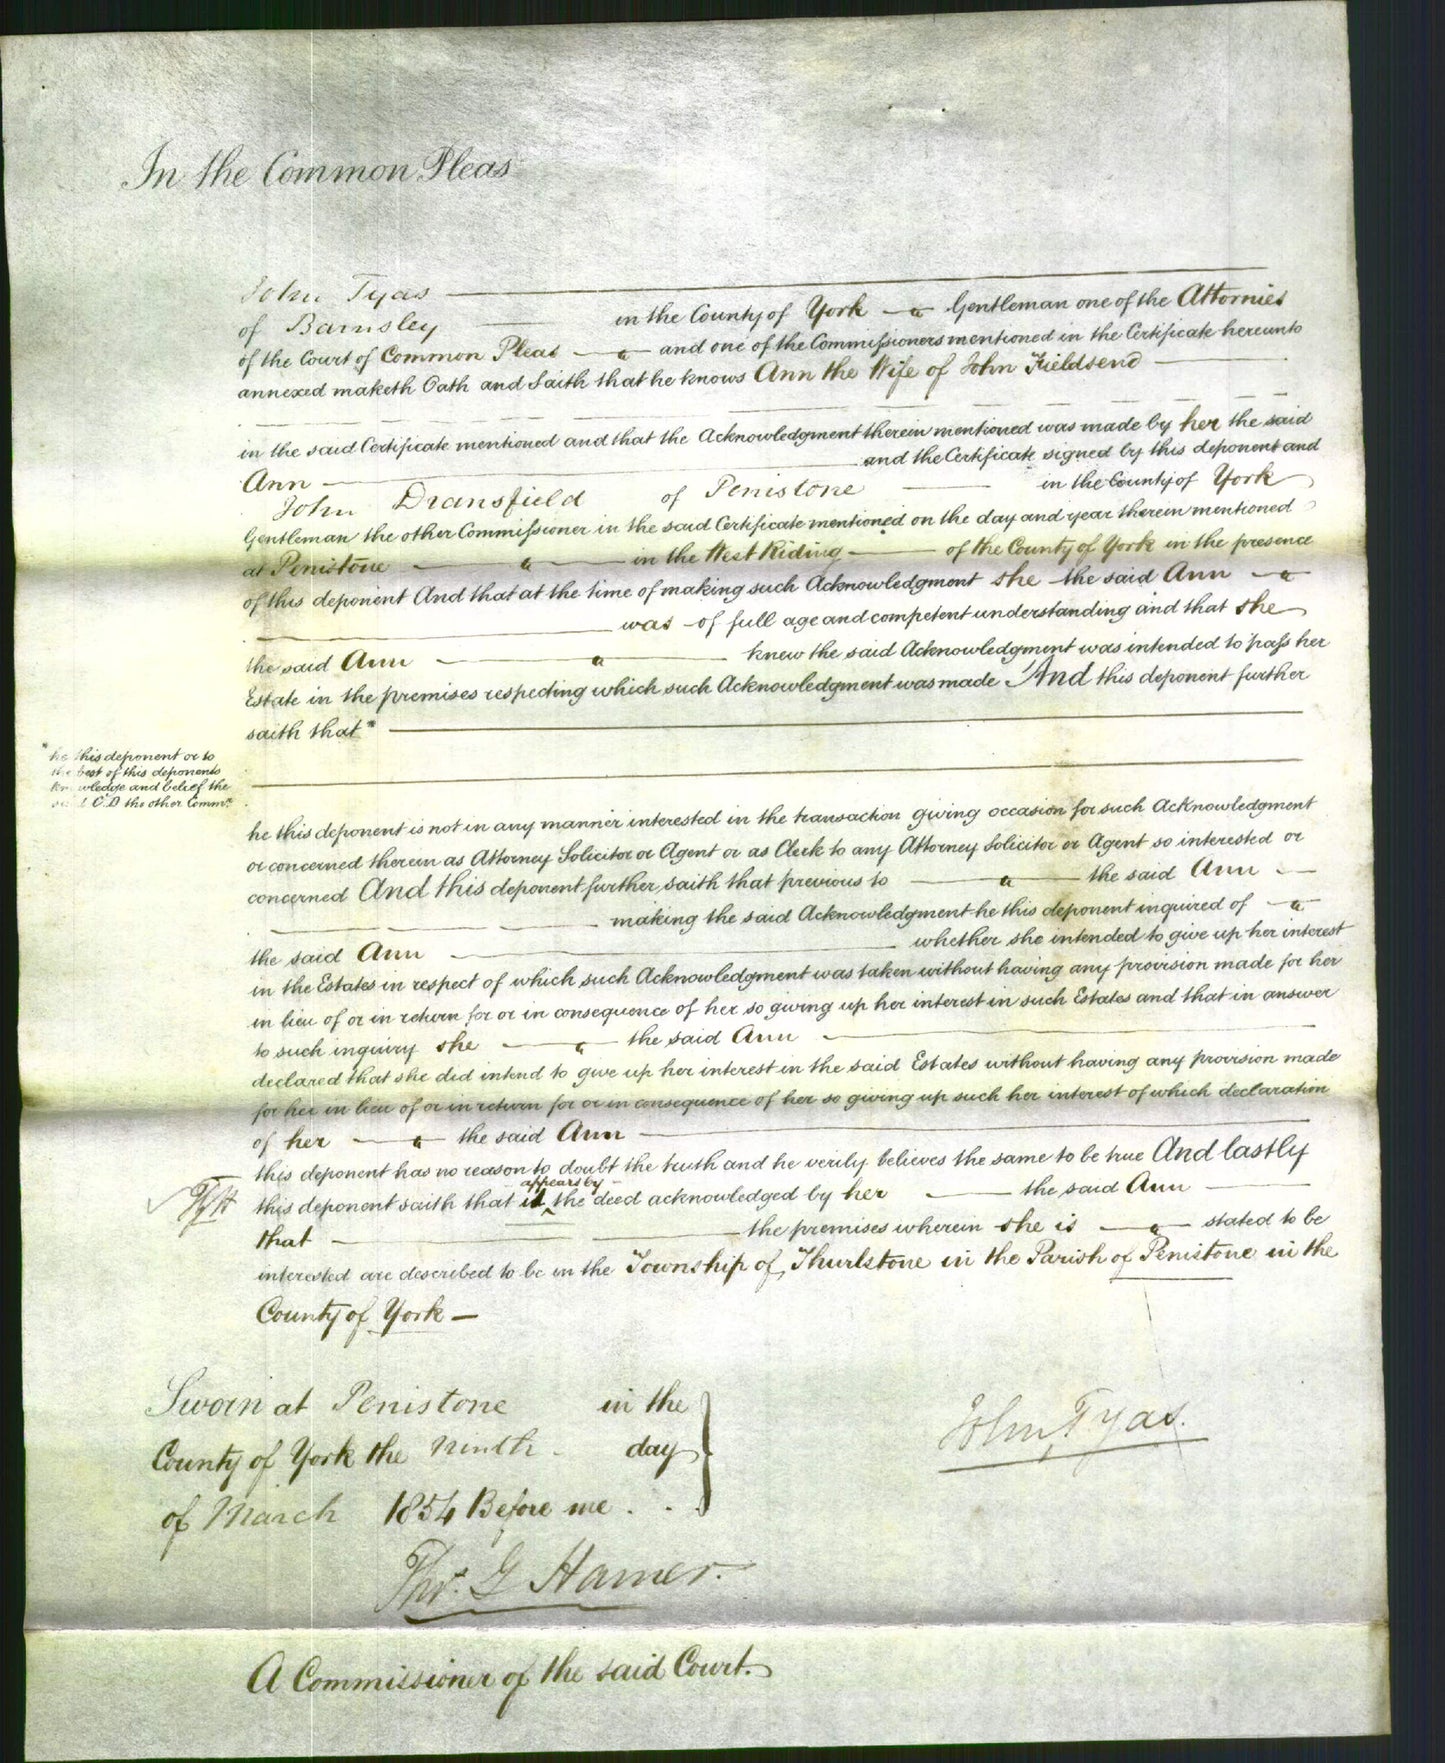 In the Common Pleas
John Tyas
of Barnsley in the County of York Gentleman one of the Attornies
of the Court of Common Pleas and one of the Commissioners mentioned in the Certificate hereunto
annexed maketh Oath and Saith that he knows Ann the Wife of John Fieldsend
in the said Certificate mentioned and that the Acknowledgment therein mentioned was made by her the said
Ann and the Certificate signed by this deponent and
John Dransfield of Penistone in the County of York
Gentleman the other Commissioner in the said Certificate mentioned on the day and year therein mentioned
at Penistone in the West Riding of the County of York in the presence
of this deponent And that at the time of making such Acknowledgment she the said Ann
was of full age and competent understanding and that she
the said Ann knew the said Acknowledgment was intended to pass her
Estate in the premises respecting which such Acknowledgment was made And this deponent further
saith that*
* he this deponent or to
the best of this deponents
knowledge and belief the
said C.D the other Commr.
he this deponent is not in any manner interested in the transaction giving occasion for such Acknowledgment
or concerned therein as Attorney Solicitor or Agent or as Clerk to any Attorney Solicitor or Agent so interested or
concerned And this deponent further saith that previous to the said Ann
making the said Acknowledgment he this deponent inquired of
the said Ann whether she intended to give up her interest
in the Estates in respect of which such Acknowledgment was taken without having any provision made for her
in lieu of or in return for or in consequence of her so giving up her interest in such Estates and that in answer
to such inquiry she the said Ann
declared that she did intend to give up her interest in the said Estates without having any provision made
for her in lieu of or in return for or in consequence of her so giving up such her interest of which declaration
of her the said Ann
this deponent has no reason to doubt the truth and he verily believes the same to be true And lastly
appears by
this deponent saith that it the deed acknowledged by her the said Ann
that the premises wherein she is stated to be
interested are described to be in the Township of Thurlstone in the Parish of Penistone in the
County of York
Sworn at Penistone in the
County of York the Ninth day
of March 1854 Before me
John Tyas.
Thos. G Hamer.
A Commissioner of the said Court.